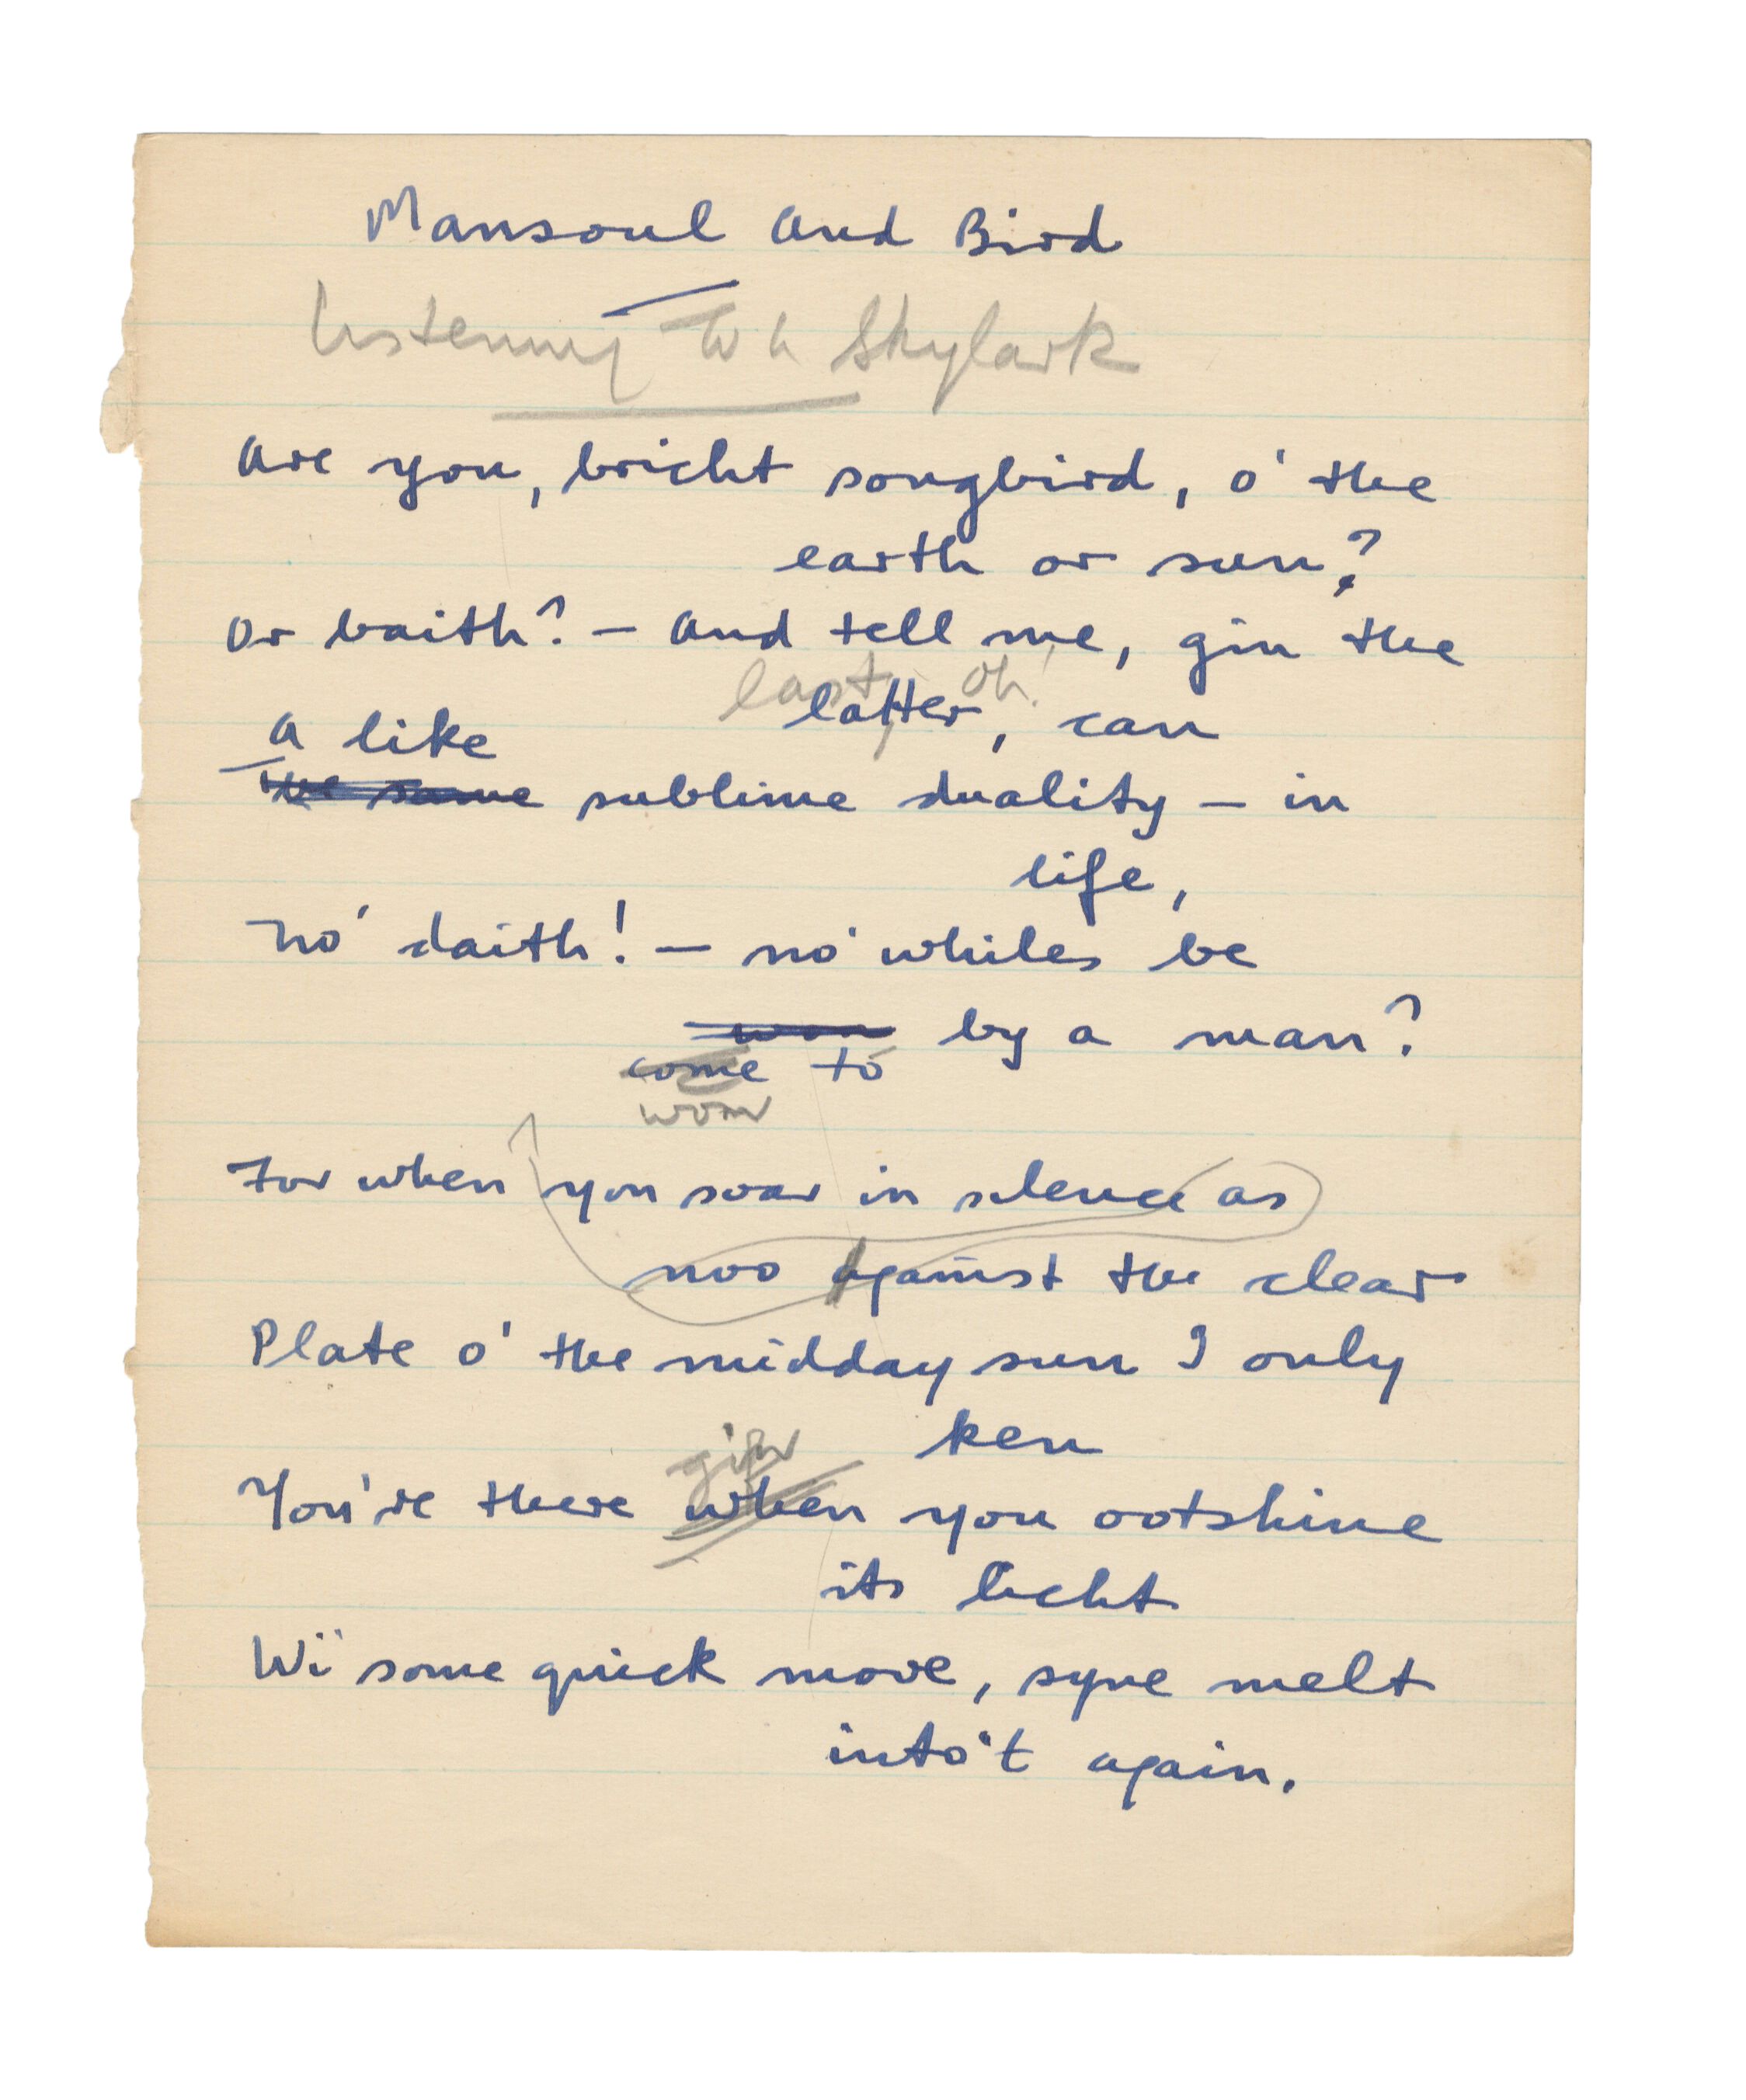 Mansoul and Bird
Listening to a Skylark
Are you, bricht songbird, o' the
earth or sun?
Or baith? – And tell me, gin the
last, oh!
latter, can
a like
the same sublime duality – in
life,
No' daith! – no' whiles be
won by a man?
come to
won
For when you soar in silence as
noo against the clear
Plate o' the midday sun I only
ken
gin
You're there when you ootshine
its licht
Wi' some quick move, syne melt
into't again.